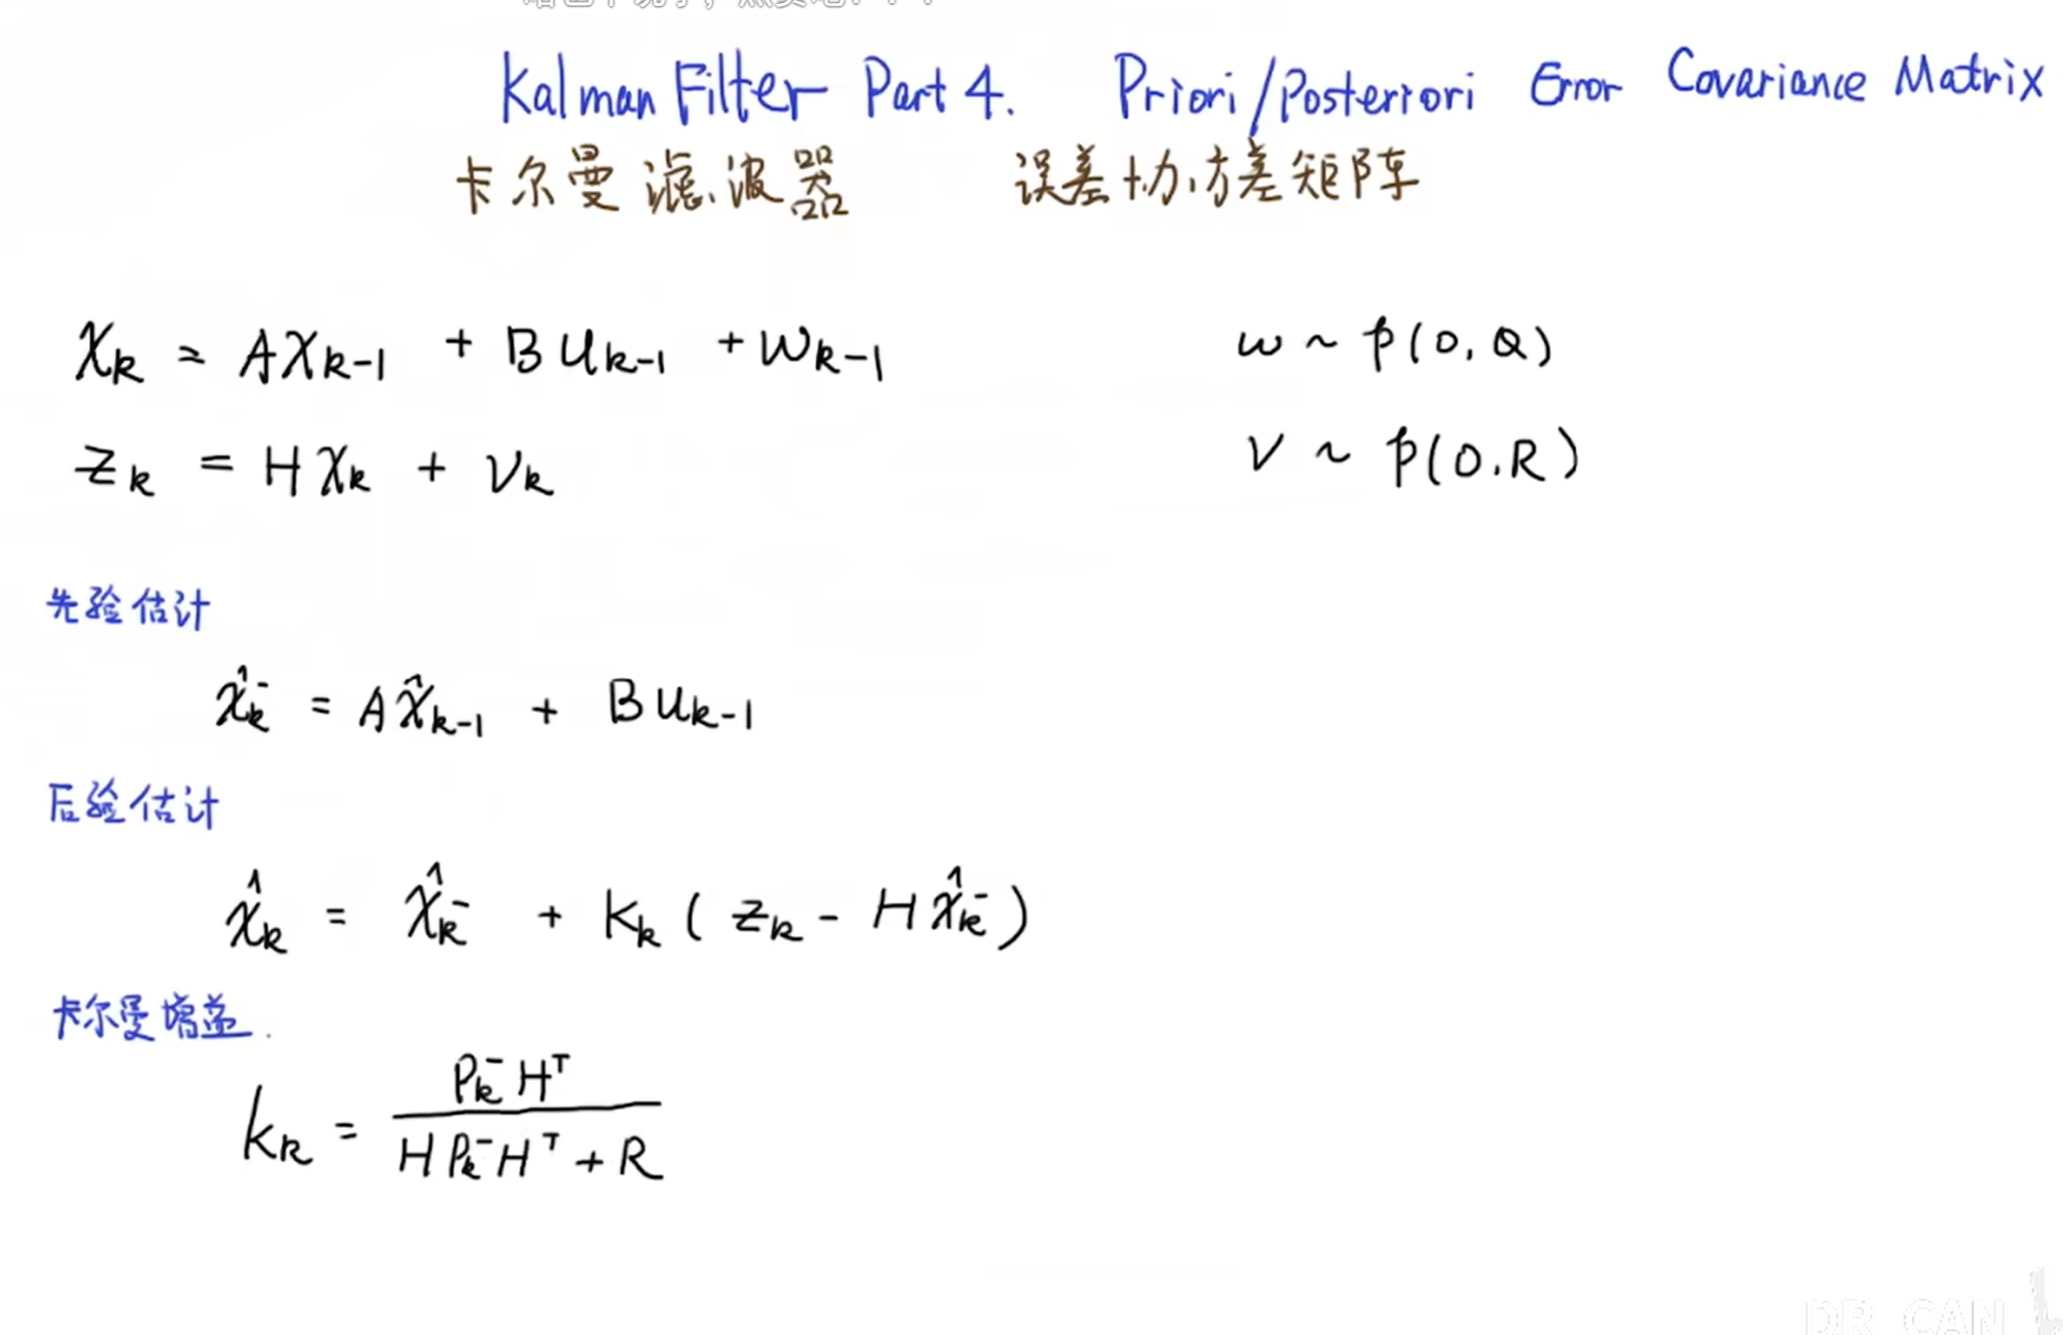 Kalman Filter Part 4. Priori/Posteriori Error Covariance Matrix
卡尔曼滤波器 误差协方差矩阵
X_k = AX_{k-1} + BU_{k-1} + W_{k-1} w ~ p(0, Q)
Z_k = HX_k + V_k V ~ p(0.R)
先验估计
x̂_k^- = Ax̂_{k-1} + BU_{k-1}
后验估计
x̂_k = x̂_k^- + K_k ( Z_k - Hx̂_k^- )
卡尔曼增益.
K_k = \frac{P_k^- H^T}{H P_k^- H^T + R}
DR_CAN